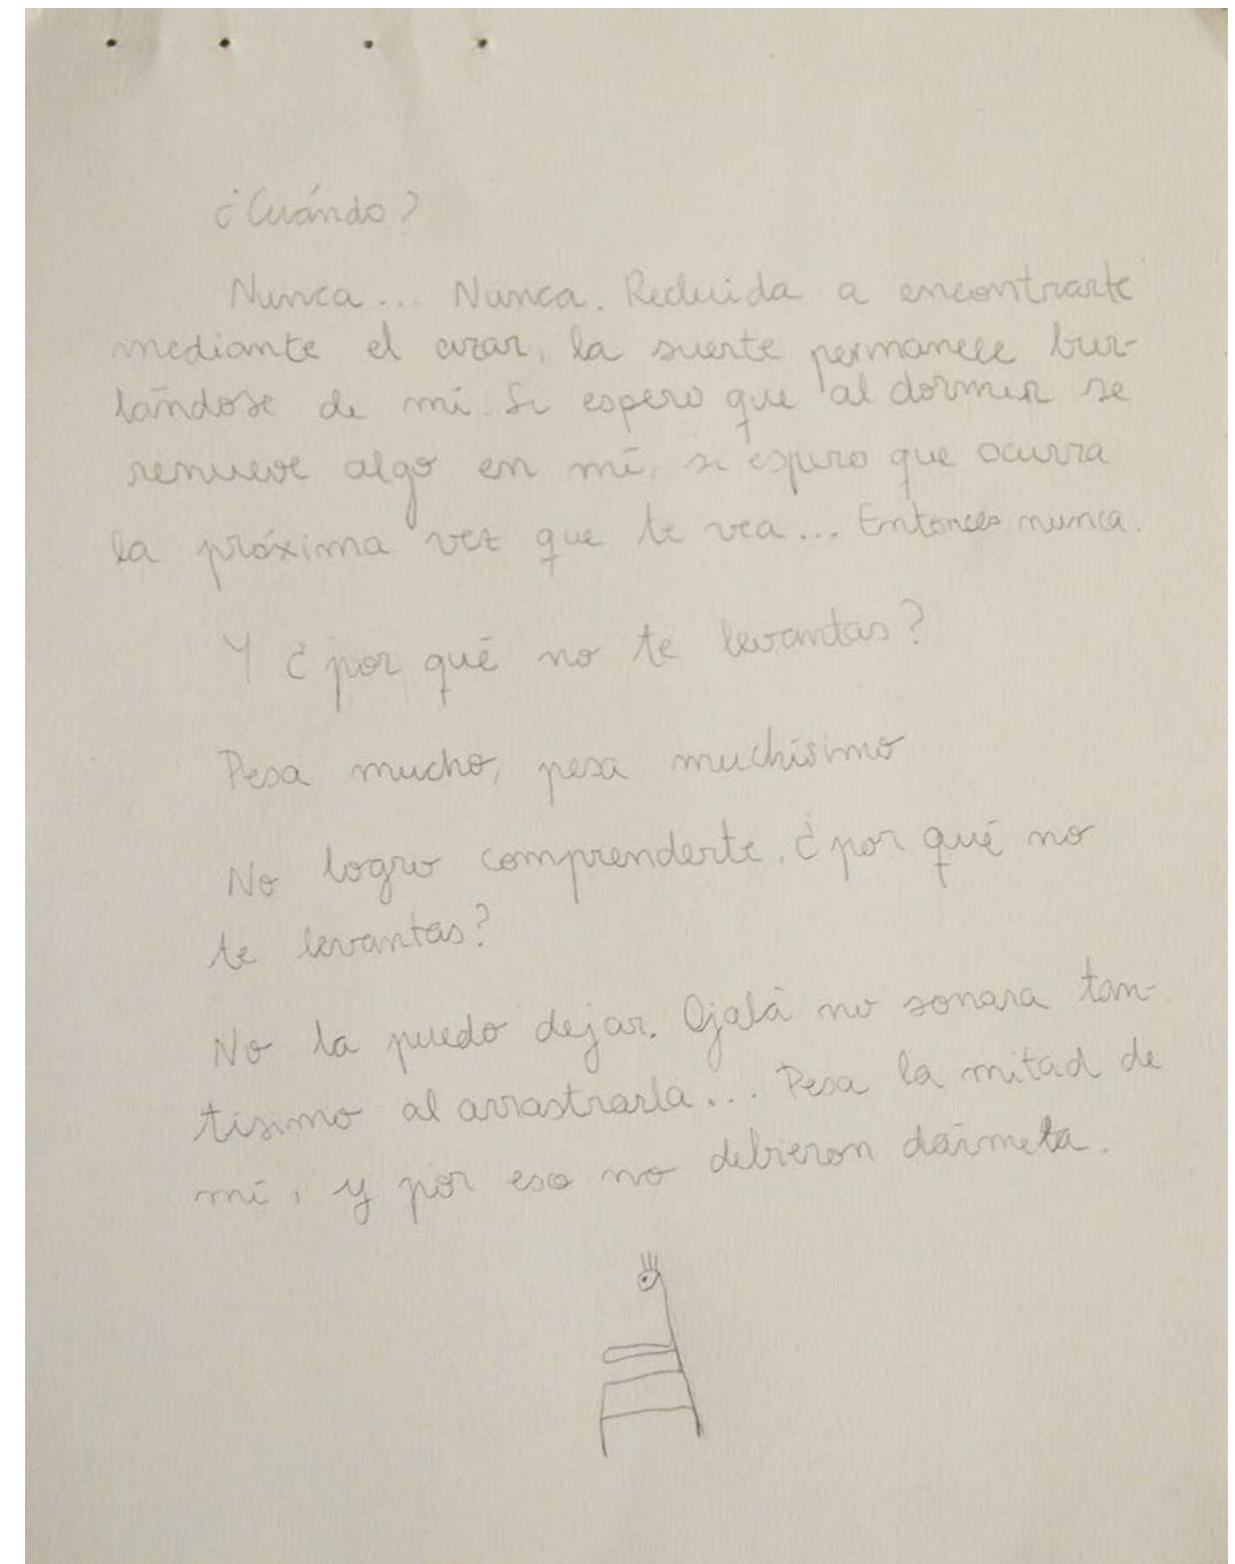 ¿Cuándo?
Nunca... Nunca. Reducida a encontrarte
mediante el azar, la suerte permanece bur-
lándose de mí. Si espero que al dormir se
renueve algo en mí, si espero que ocurra
la próxima vez que te vea... Entonces nunca.
Y ¿por qué no te levantas?
Pesa mucho, pesa muchísimo
No logro comprenderte, ¿por qué no
te levantas?
No la puedo dejar. Ojalá no sonara tan-
tísimo al arrastrarla... Pesa la mitad de
mí, y por eso no debieron dármela.